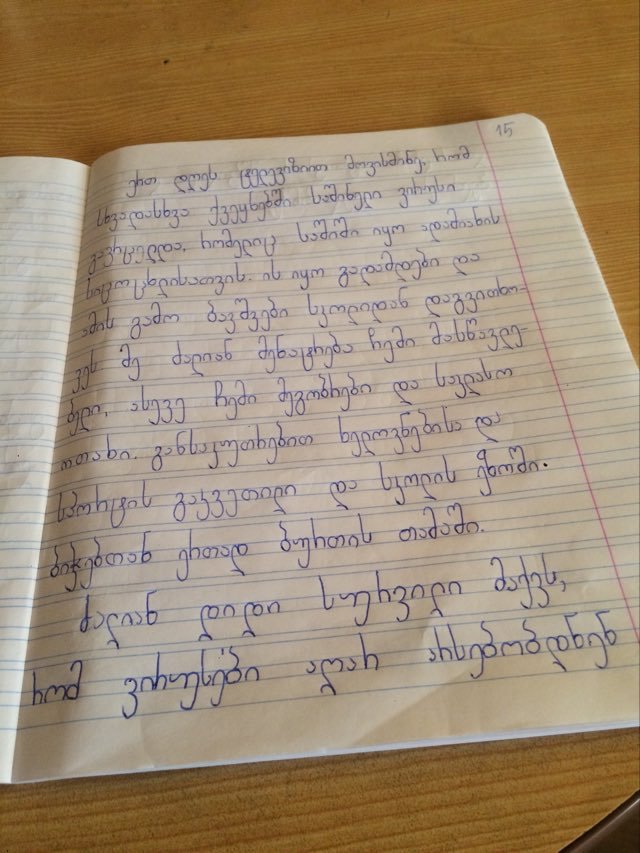 ერთ დღეს ტელევიზორით მოვისმინე, რომ
სხვადასხვა ქვეყნებში საშინელი ვირუსი
გავრცელდა, რომელიც საშიში იყო ადამიანის
სიცოცხლისთვის. ის იყო გადამდები და
ამის გამო ბავშვები სკოლიდან დაგვითხო-
ვეს. მე ძალიან მენატრება ჩემი მასწავლე-
ბელი, ასევე ჩემი მეგობრები და საკლასო
ოთახი. ხელოვნებისა და
სპორტის გაკვეთილი და სკოლის ეზოში.
ბიჭებთან ერთად ბურთის თამაში.
ძალიან დიდი სურვილი მაქვს,
რომ ვირუსები აღარ არსებობდეს
15